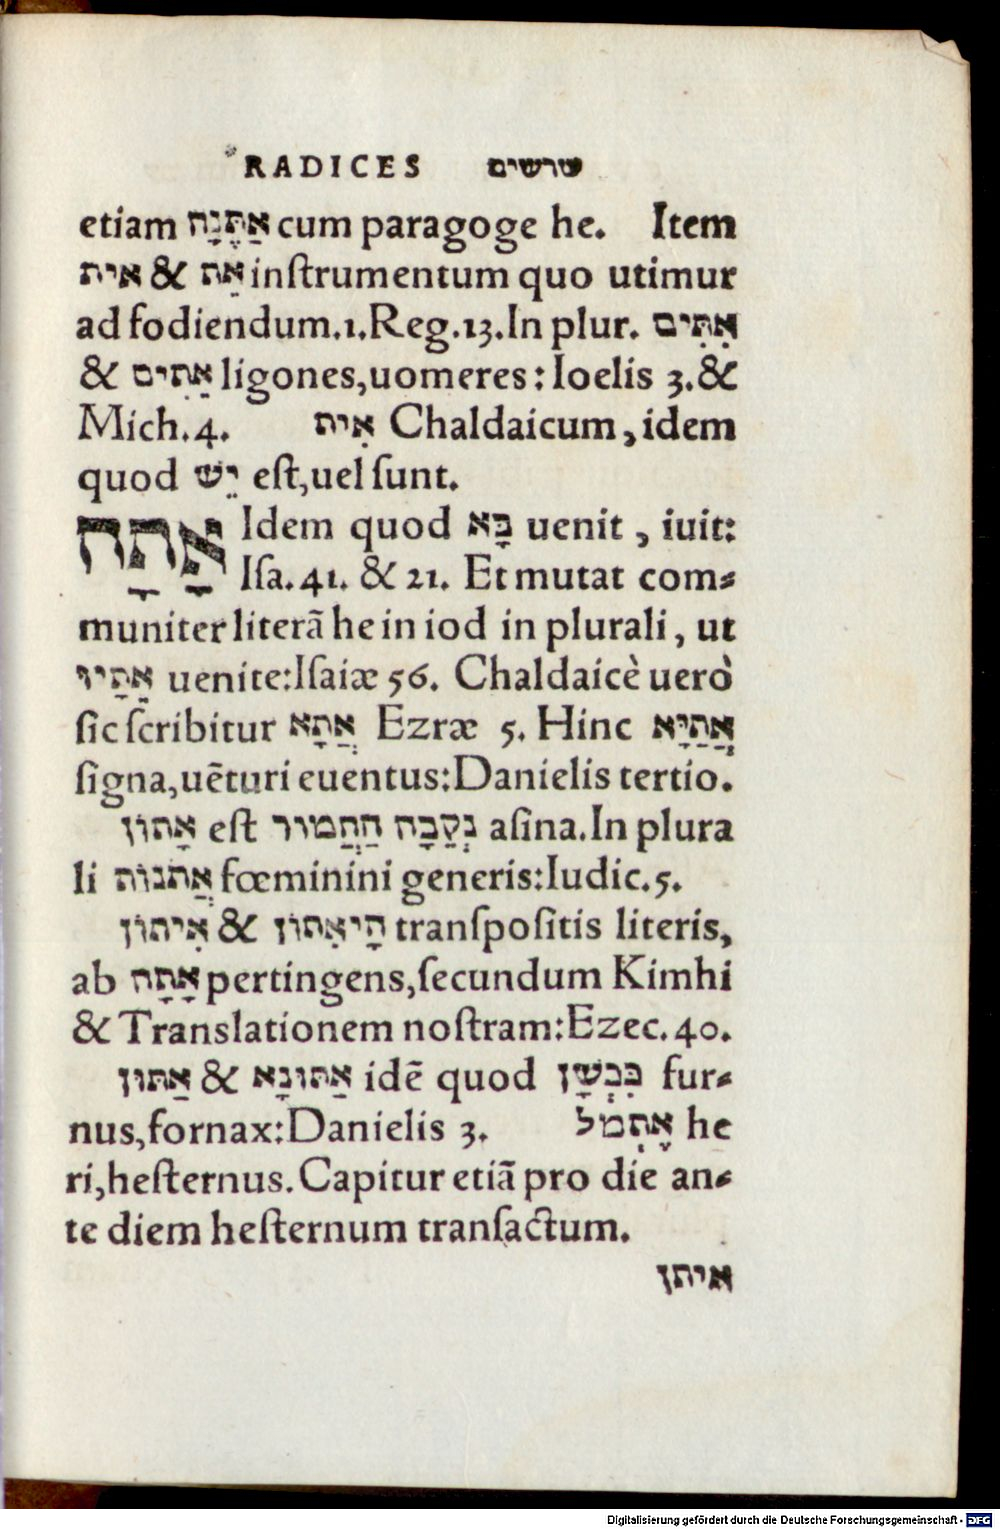 RADICES שרשים
etiam אַתֵּנָה cum paragoge he. Item
אית & אֵת inſtrumentum quo utimur
ad fodiendum.1.Reg.13.In plur. אִתִּים
& אַתִים ligones,uomeres: Ioelis 3.&
Mich.4. אִית Chaldaicum, idem
quod יֵשׁ eſt,uel ſunt.
אָתָה Idem quod בָּא uenit, iuit:
Iſa.41. & 21. Et mutat com-
muniter literã he in iod in plurali, ut
אֵתָיוּ uenite:Iſaiæ 56. Chaldaicè uerò
ſic ſcribitur אֲתָא Ezræ 5. Hinc אֲתַיָּא
ſigna,uẽturi euentus:Danielis tertio.
אָתוֹן eſt נְקֵבָה הַחֲמוֹר aſina.In plura
li אֲתֹנוֹת fœminini generis:Iudic.5.
אִיתוֹן & הָיאִתוֹן tranſpoſitis literis,
ab אָתָה pertingens,ſecundum Kimhi
& Translationem noſtram:Ezec.40.
אַתּוּן & אַתּוּנָא idẽ quod כִּבְשָׁן fur-
nus,fornax:Danielis 3. אֶתְמֹל he
ri,heſternus. Capitur etiã pro die an-
te diem heſternum tranſactum.
איתן
Digitalisierung gefördert durch die Deutsche Forschungsgemeinschaft - DFG